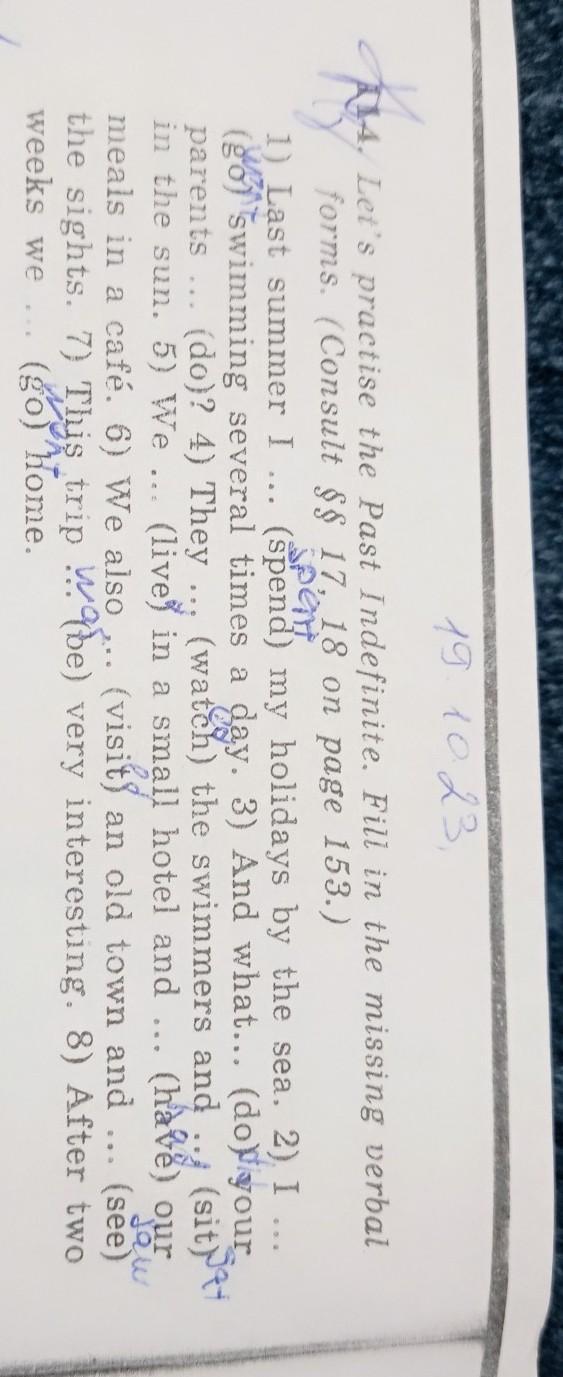 19.10.23,
A14. Let's practise the Past Indefinite. Fill in the missing verbal
forms. (Consult §§ 17, 18 on page 153.)
spent
1) Last summer I ... (spend) my holidays by the sea. 2) I ...
went
(go) swimming several times a day. 3) And what... (do) your
did
parents ... (do)? 4) They ... (watch) the swimmers and ... (sit)
ed sat
in the sun. 5) We ... (live) in a small hotel and ... (have) our
d had
meals in a café. 6) We also ... (visit) an old town and ... (see)
ed saw
the sights. 7) This trip ... (be) very interesting. 8) After two
was
weeks we ... (go) home.
went